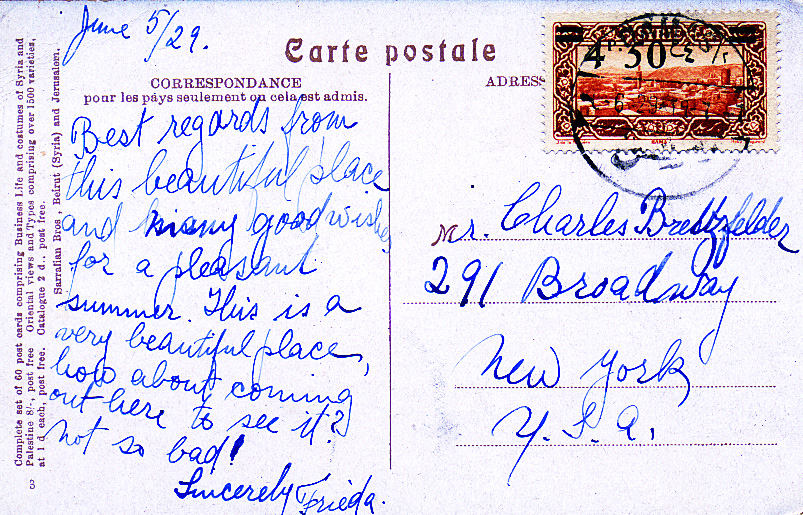 June 5/29.
Carte postale
CORRESPONDANCE
pour les pays seulement ou cela est admis.
ADRESS
Best regards from
this beautiful place
and many good wishes
for a pleasant
summer. This is a
very beautiful place,
how about coming
out here to see it?
not so bad!
Sincerely Frieda.
Mr. Charles Brettzfelder
291 Broadway
New York
U.S.A.
4 P. 50
Complete set of 60 post cards comprising Business Life and costumes of Syria and
Palestine 8/-, post free Oriental views and Types comprising over 1500 varieties,
at 1 d each, post free. Catalogue 2 d., post free.
Sarrafian Bros, Beirut (Syria) and Jerusalem.
3